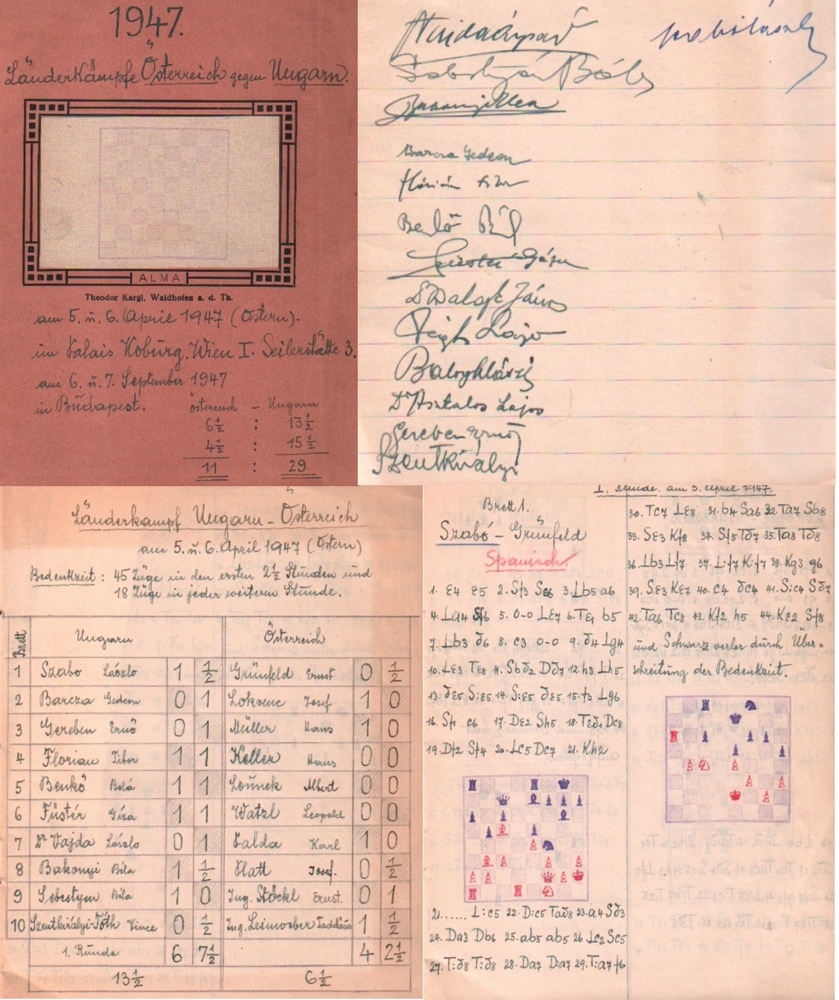 1947.
Länderkämpfe Österreich gegen Ungarn.
ALMA
Theodor Kargl, Waidhofen a. d. Th.
am 5. u. 6. April 1947 (Ostern).
im Palais Koburg. Wien I. Seilerstätte 3.
am 6. u. 7. September 1947
in Budapest.
Österreich - Ungarn
6½ : 13½
4½ : 15½
11 : 29
Barcza Gedeon
Flórián Tibor
Benkö Bél
Balogh
Dr Asztalos Lajos
Gereben Ernő
Szentkirályi
Länderkampf Ungarn - Österreich
am 5. u. 6. April 1947 (Ostern)
Bedenkzeit: 45 Züge in den ersten 2½ Stunden und
18 Züge in jeder weiteren Stunde.
Brett Ungarn Österreich
1 Szabo László 1 ½ Grünfeld Ernst 0 ½
2 Barcza Gedeon 0 1 Lokvenc Josef 1 0
3 Gereben Ernö 0 1 Müller Hans 1 0
4 Florian Tibor 1 1 Keller Hans 0 0
5 Benkö Belá 1 1 Albert 0 0
6 Füstér Géza 1 1 Watzl Leopold 0 0
7 Dr Vajda László 0 1 Palda Karl 1 0
8 Bakonyi Béla 1 ½ Platt Josef. 0 ½
9 Sebestyen Béla 1 0 Ing. Stöckl Ernst. 0 1
10 Szentkirályi-Tóth Vince 0 ½ Ing. 1 ½
1. Runde 6 7½ 4 2½
13½ 6½
Brett 1.
Szabó - Grünfeld
Spanisch.
1. e4 e5 2. Sf3 Sc6 3. Lb5 a6
4. La4 Sf6 5. 0-0 Le7 6. Te1 b5
7. Lb3 d6 8. c3 0-0 9. d4 Lg4
10. Le3 Te8 11. Sbd2 Dd7 12. h3 Lh5
13. de5 S:e5 14. S:e5 de5 15. f3 Lg6
16. Sf1 c6 17. De2 Sh5 18. Ted1 Dc8
19. Df2 Sf4 20. Lc5 Dc7 21. Kh2
21. ...... L:c5 22. D:c5 Tad8 23. a4 Sd3
24. Da3 Db6 25. ab5 ab5 26. Lc2 Sc5
27. T:d8 T:d8 28. Da7 D:a7 29. T:a7 f6
1. Runde. am 5. April 1947.
30. Tc7 Le8 31. b4 Sa6 32. Ta7 Sb8
33. Se3 Kf8 34. Sf5 Td7 35. Ta8 Td8
36. Lb3 Lf7 37. L:f7 K:f7 38. Kg3 g6
39. Se3 Ke7 40. c4 dc4 41. S:c4 Sd7
42. Ta6 Tc8 43. Kf2 h5 44. Ke2 Sf8
und Schwarz verlor durch Über-
schreitung der Bedenkzeit.